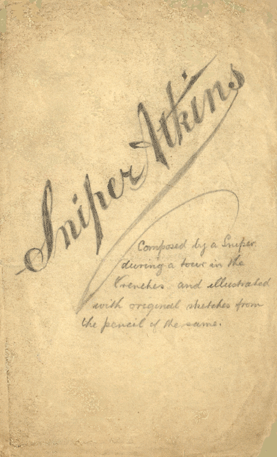 Sniper Atkins
Composed by a Sniper
during a tour in the
trenches and illustrated
with original sketches from
the pencil of the same.